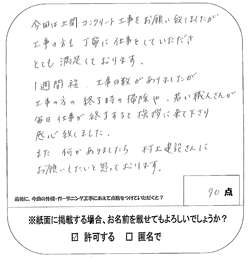 今回は土間コンクリート工事をお願い致しましたが
工事の方も丁寧に仕事をしていただき
とても満足しております。
1週間程、工事日数がありましたが
工事の方の終了時の掃除や、若い職人さんが
毎日仕事が終了すると挨拶に来て下さり
感心致しました。
また何かありましたら 村上建設さんに
お願いしたいと思っております。
最後に、今回の外構・ガーデニング工事にあえて点数をつけていただくと？
90 点
※紙面に掲載する場合、お名前を載せてもよろしいでしょうか？
☑ 許可する □ 匿名で